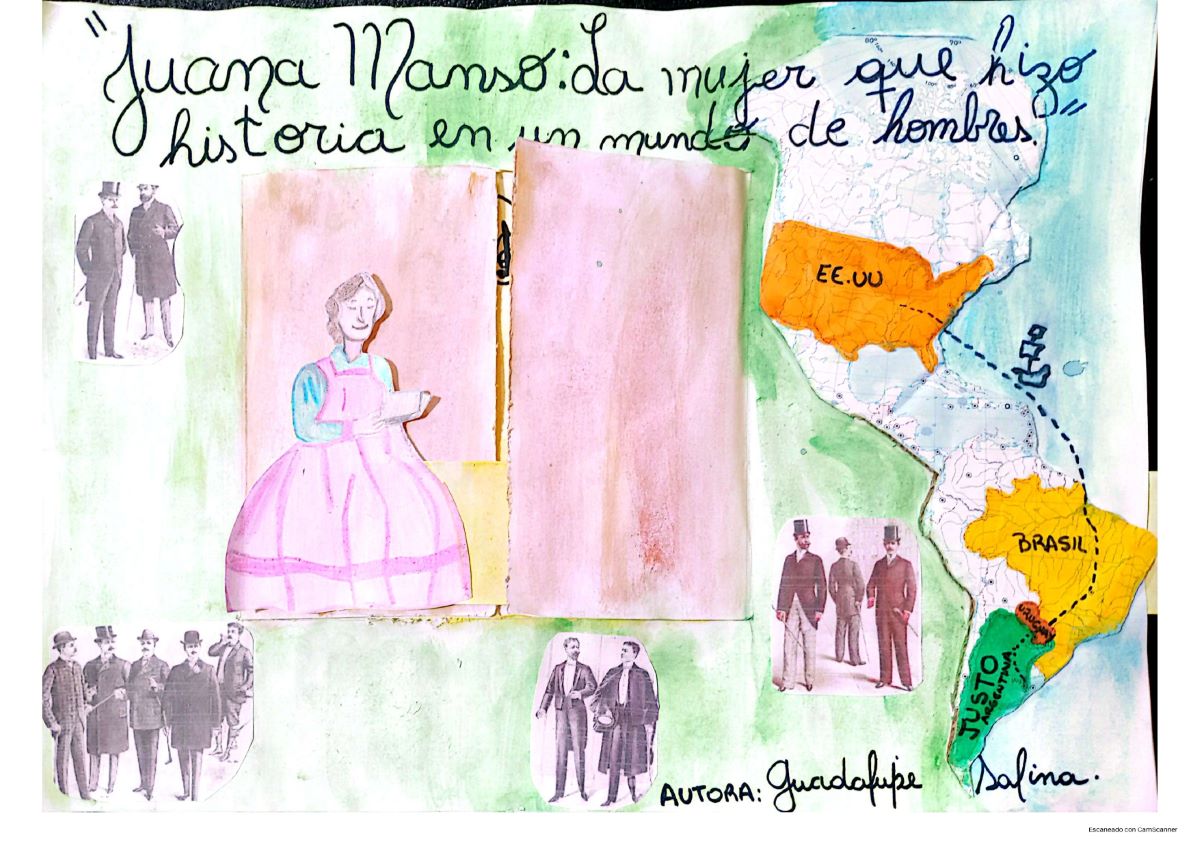 "Juana Manso: La mujer que hizo
historia en un mundo de hombres."
80°
90°
EE.UU
BRASIL
URUGUAY
JUSTO
ARGENTINA
AUTORA: Guadalupe Salina.
Escaneado con CamScanner